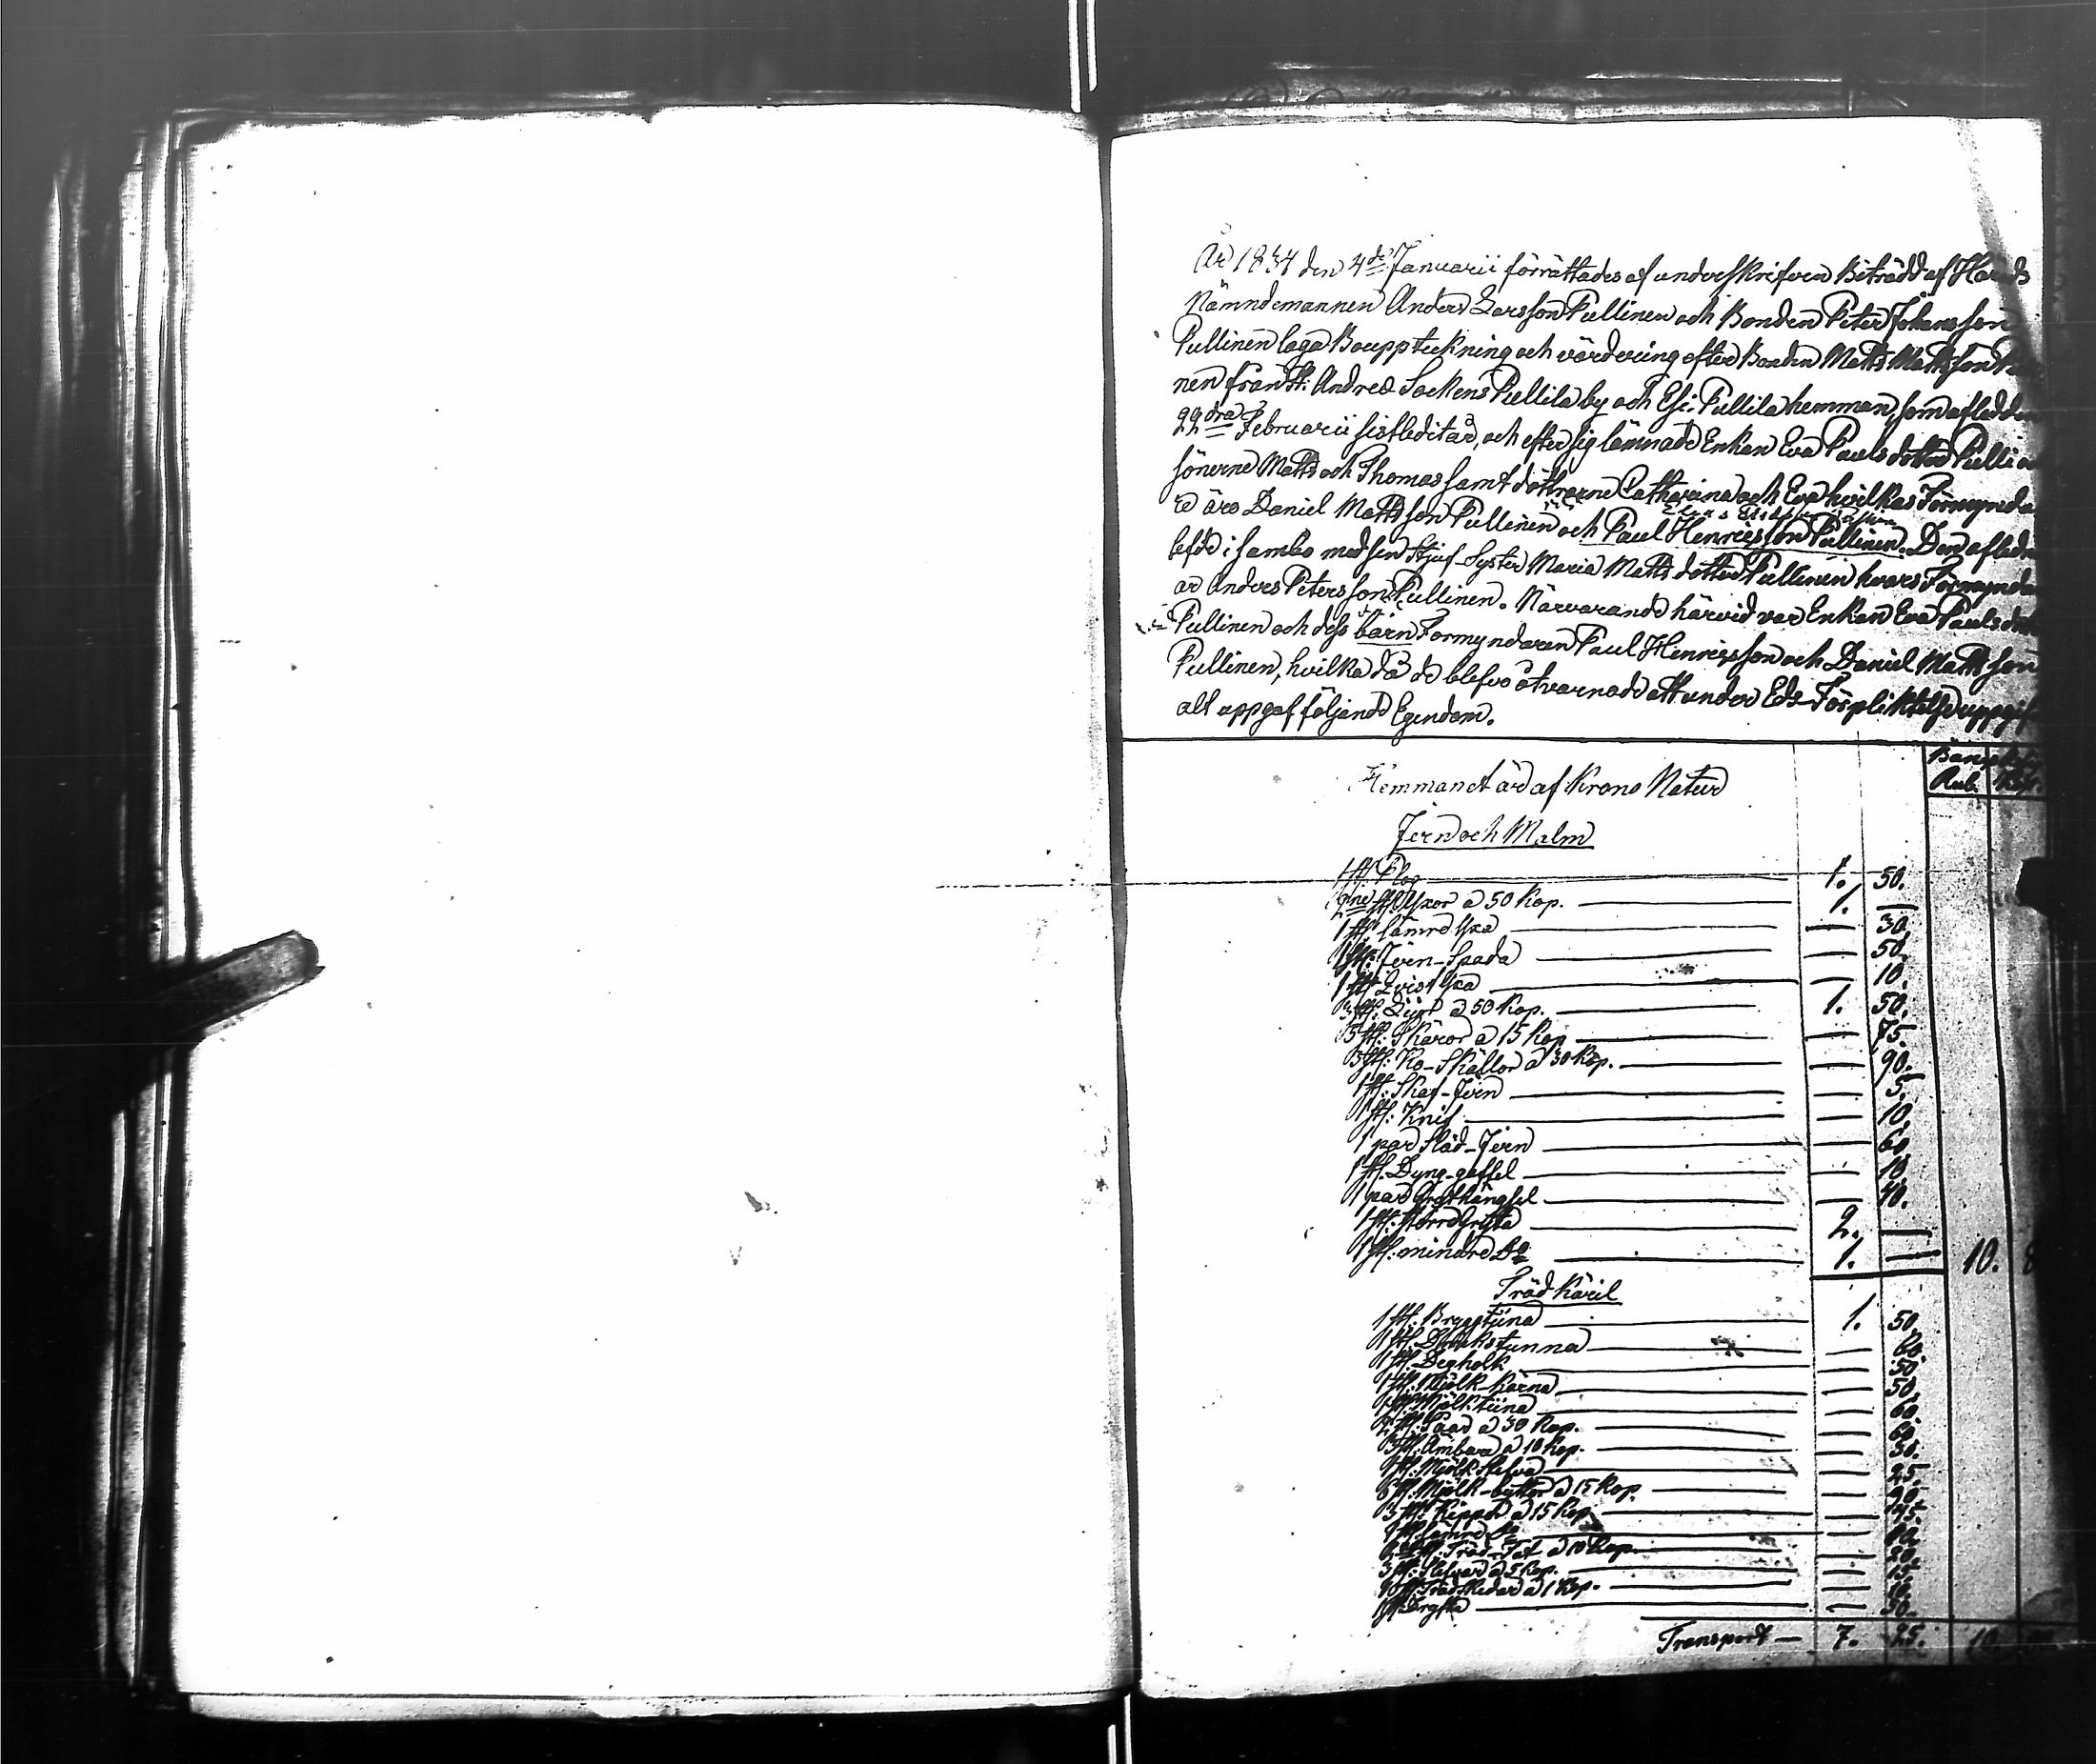 År 1834 den 4de Januarii förrättades af underskrifven Biträdd af Harads
Nämndemannen Anders Larsson Pullinen och Bonden Peter Johansson
Pullinen laga Bouppteckning och värdering efter Bonden Matts Mattsson
nen från St: Andreæ Sockens Pullila by och Esi: Pullila hemman, som afled den
22dra Februarii sistledit år, och efter sig lämnade Enkan Eva Paulsdotter Pulli
sönerne Matts och Thomas samt döttrarne Catharina och Eva hvilkas Förmynda
re äro Daniel Mattsson Pullinen och Paul Henricsson Pullinen. Den afledne
lefde i sambo med sin Stjuf-Syster Maria Matts dotter Pullinen hvars Förmynda
ar Anders Petersson Pullinen. Närvarande härvid var Enkan Eva Pauls
Pullinen och dess barn Formyndaren Paul Henricsson och Daniel Mattsson
Pullinen, hvilka då de blefvo åtvarnade att under Eds-Förpliktelse uppgif
alt uppgaf följande Egendom.
Rub. Kop.
Hemmanet är af Krono Natur
Jern och Malm
1 st. Plog 1. 50.
2ne st. Yxor a 50 Kop. 1. —
1 st. sämre Yxa — 30.
1 st. Jern-Spada — 50.
1 st. Qvist Yxa — 10.
3 st. Liar a 50 Kop. 1. 50.
5 st. Skäror a 15 Kop — 75.
3 st. Ko-Skällor a 30 Kop. — 90.
1 st. Skaf-Jern — 5.
1 st. Knif — 10.
1 par Släd-Jern — 60
1 st. Dyng-gaffel — 10.
1 par hängsel — 40.
1 st. större Gryta 2. —
1 st. mindre Do 1. — 10.
Träd Käril
1 st. Bryggtina 1. 50.
1 st. Drickstunna — 60
1 st. Degholk — 50.
1 st. Mjölk-Kärna — 50.
1 st. Mjölktina — 60.
2 st. Såar a 30 Kop. — 60.
3 st. Ämbare a 10 Kop. — 30.
1 st. Mjölk — 25.
6 st. Mjölk-byttor a 15 Kop. — 90.
3 st. Kippor a 15 Kop — 45.
1 st. sämre Do — 10.
st. Träd-Fat a 10 Kop. — 20.
3 st. a 5 Kop. — 15.
10 st. Träd Skedar a 1 Kop. — 10.
1 st. — 50.
Transport — 7. 25. 10.